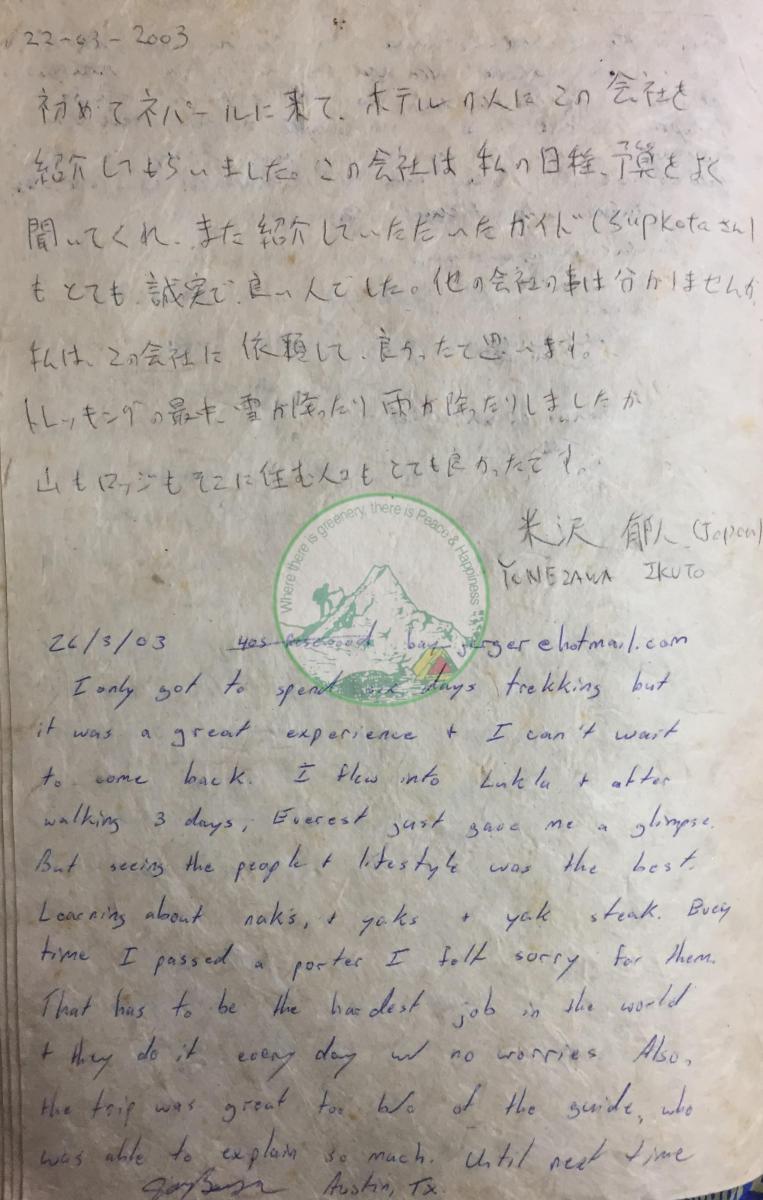 22-03-2003
初めてネパールに来て、ホテルの人に この 会社を
紹介してもらいました。この会社は 私の日程、予算をよく
聞いてくれ、また紹介していただいたガイド(Supkotaさん)
もとても 誠実で 良い人でした。他の会社の事は分かりませんが
私は、この会社に 依頼して、良かったて思います。
トレッキングの最中、雪が降ったり 雨が降ったりしましたが
山もロッジもそこに住む人々も とても良かったです。
米沢 郁人 (Japan)
YONEZAWA IKUTO
Where there is greenery, there is Peace & Happiness
26/3/03 @hotmail.com
I only got to spend six days trekking but
it was a great experience + I can't wait
to come back. I flew into Lukla + after
walking 3 days, Everest just gave me a glimpse.
But seeing the people + lifestyle was the best.
Learning about nak's, + yaks + yak steak. Every
time I passed a porter I felt sorry for them.
That has to be the hardest job in the world
+ they do it every day w/ no worries Also,
the trip was great too b/c of the guide, who
was able to explain so much. Until next time
Austin, Tx.